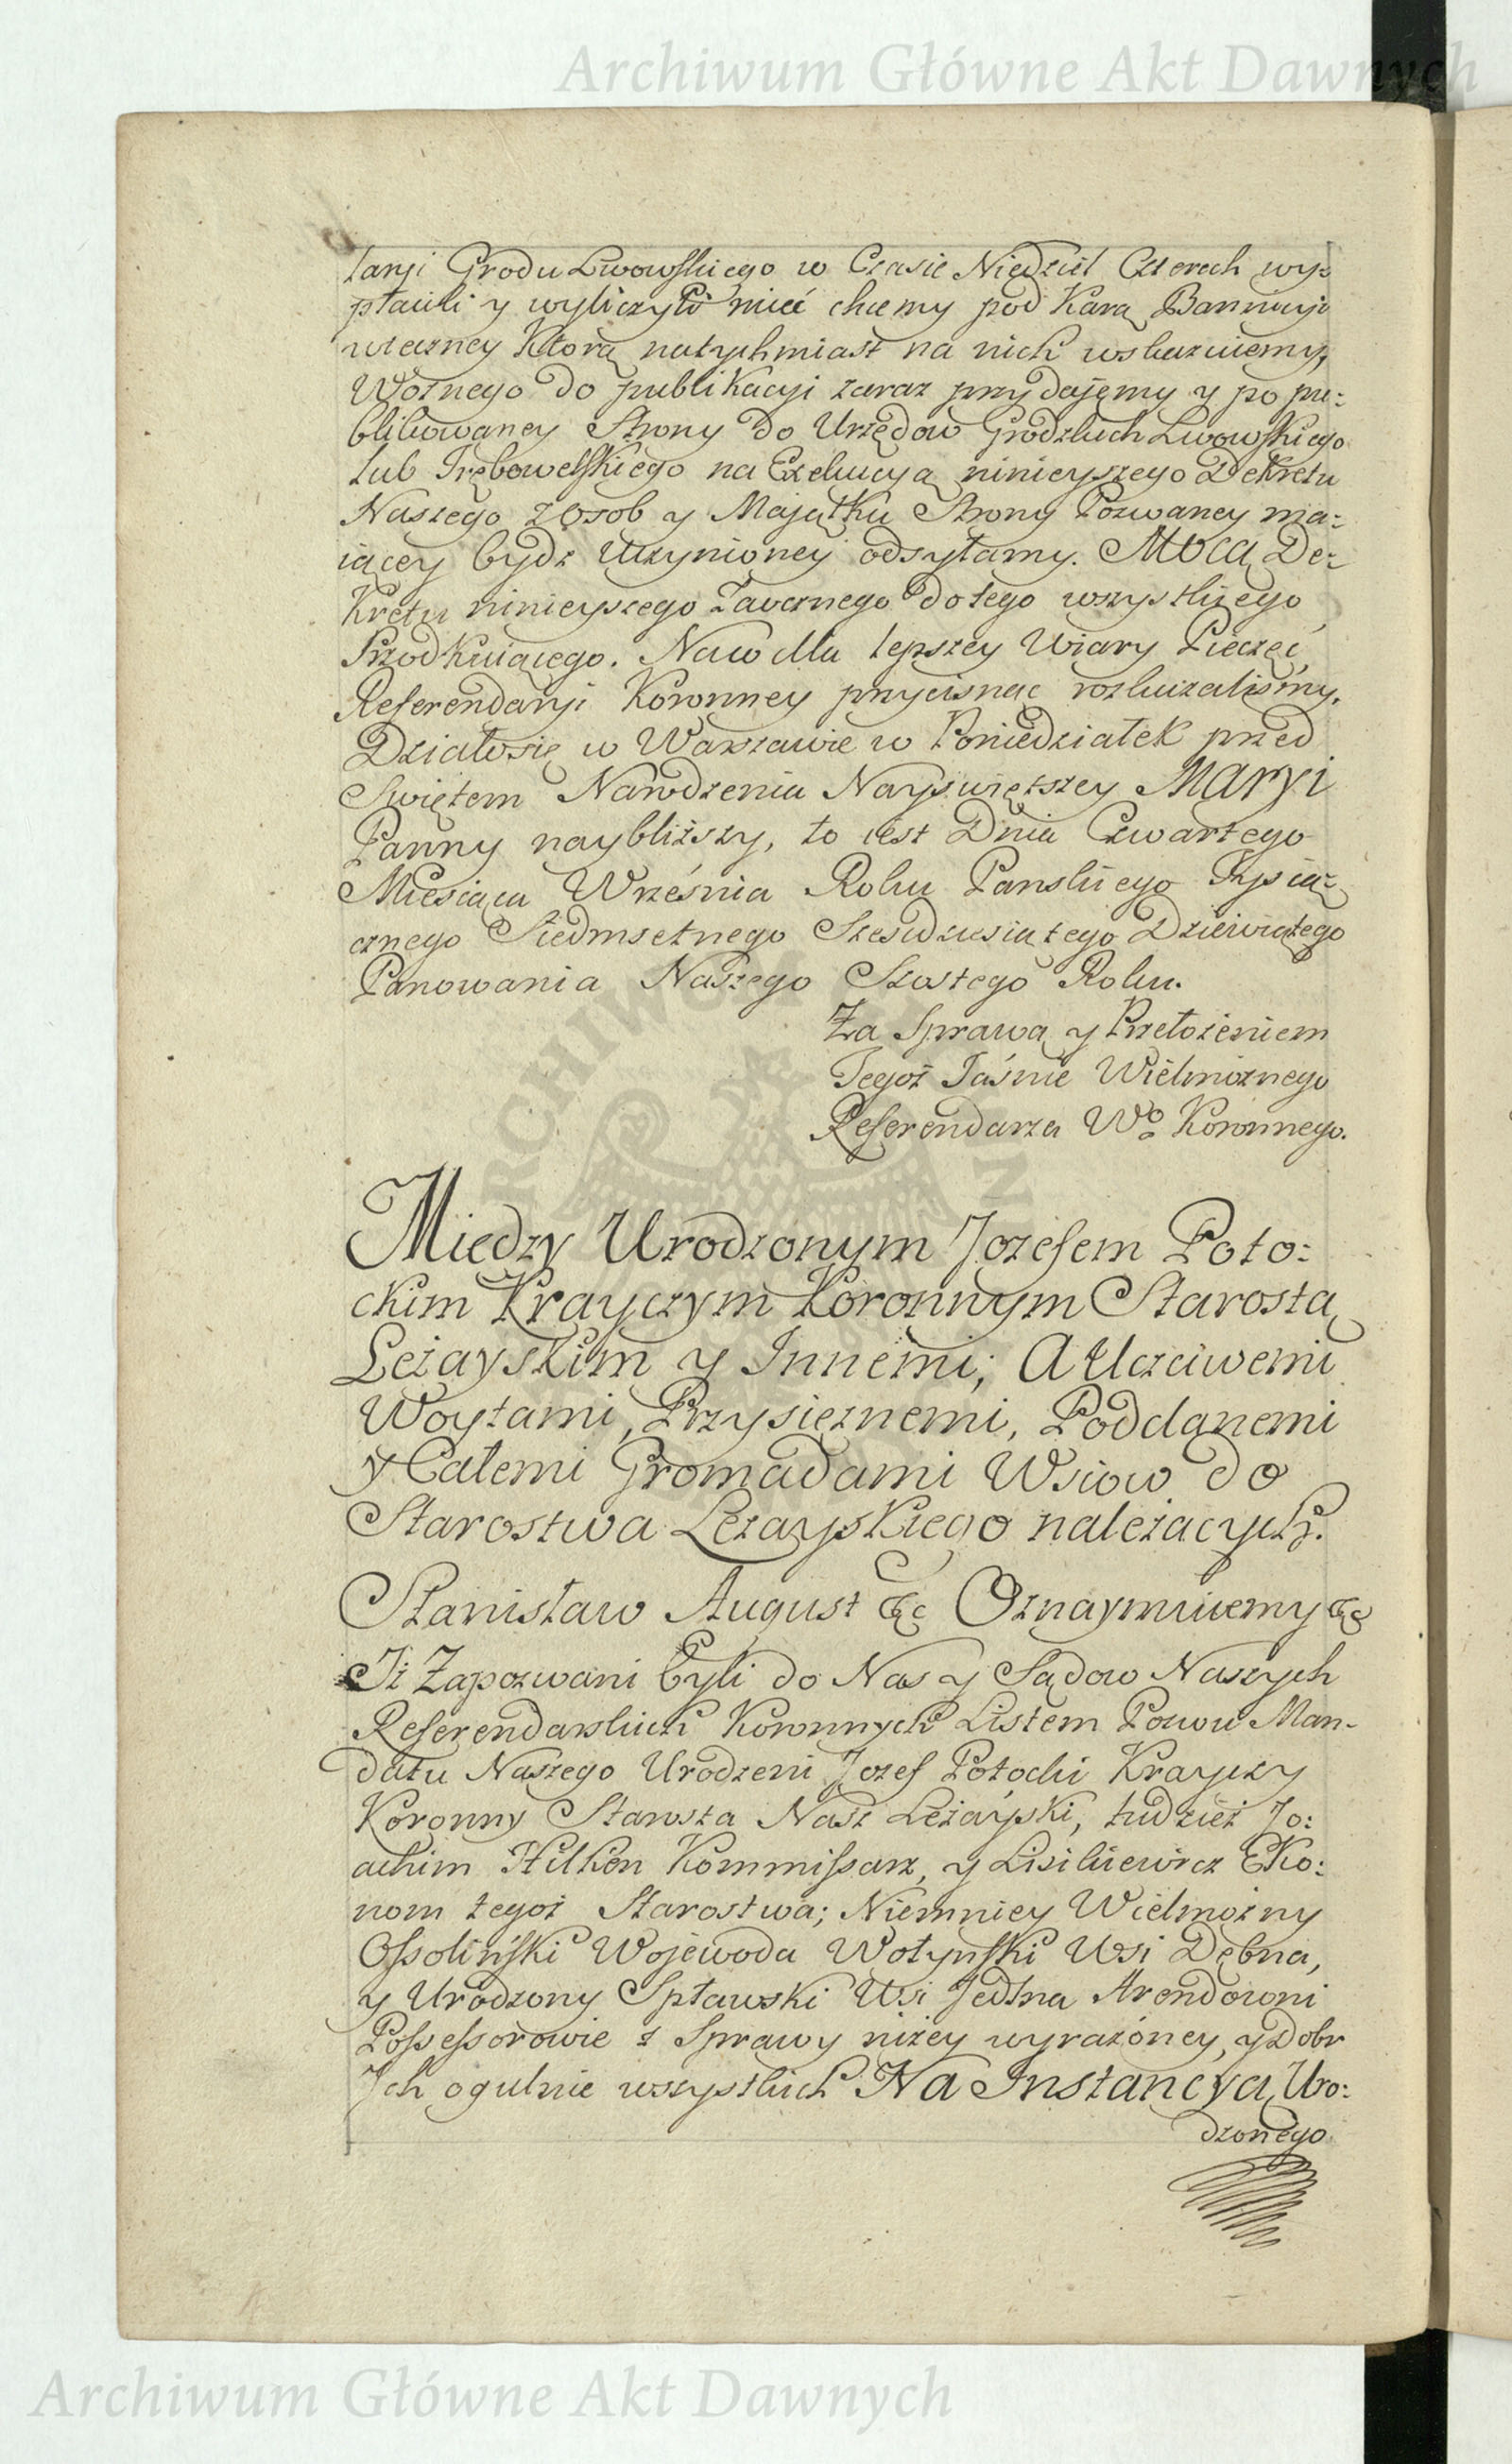 Archiwum Główne Akt Dawnych
laryi Grodu Lwowskiego w Czasie Niedziel Czterech wy=
płacili y wyliczyli mieć chcemy pod Karą Bannicyi
wieczney Ktorą natychmiast na nich wskazuiemy,
Woznego do publikacyi zaraz przydaięmy y po pu=
blikowaney Strony do Urzędow Grodzkich Lwowskiego
lub Trębowelskiego na Exekucyą ninieyszego Dekretu
Naszego z Osob y Maiątku Strony Pozwaney ma=
iącey bydz uczynioney odsyłamy. Mocą De=
Kretu ninieyszego Zaocznego do tego wszystkiego
Przodkuiącego. Na co dla lepszey Wiary Pieczęć
Referendaryi Koronney przycisnąc rozkazalismy.
Działosię w Warszawie w Poniedziałek przed
Swiętem Narodzenia Nayswiętszey Maryi
Panny naybliższy, to iest Dnia Czwartego
Miesiąca Wrzesnia Roku Panskiego Tysią=
cznego Siedmsetnego Szescdziesiątego Dziewiątego
Panowania Naszego Szostego Roku.
Za Sprawą y Przełożeniem
Tegoż Jaśnie Wielmożnego
Referendarza Wo Koronnego.
Między Urodzonym Jozefem Poto=
ckim Krayczym Koronnym Starostą
Leżayskim y Innemi; A Uczciwemi
Woytami, Przysiężnemi, Poddanemi
y Całemi Gromadami Wsiow do
Starostwa Leżayskiego należących.
Stanisław August &c Oznaymuiemy &c
Iż Zapozwani byli do Nas y Sądow Naszych
Referendarskich Koronnych Listem Pozwu Man-
datu Naszego Urodzeni Jozef Potocki Krayczy
Koronny Starosta Nasz Leżayski, tudzież Jo=
achim Hilken Kommissarz, y Lisikiewicz Eko=
nom tegoż Starostwa; Niemniey Wielmożny
Ossoliński Wojewoda Wołyński Wsi Dębna,
y Urodzony Spławski Wsi Jedlna Arendowni
Possessorowie z Sprawy niżey wyrażoney, y Dobr
Ich ogulnie wszystkich Na Instancyą Uro=
dzonego
Archiwum Główne Akt Dawnych